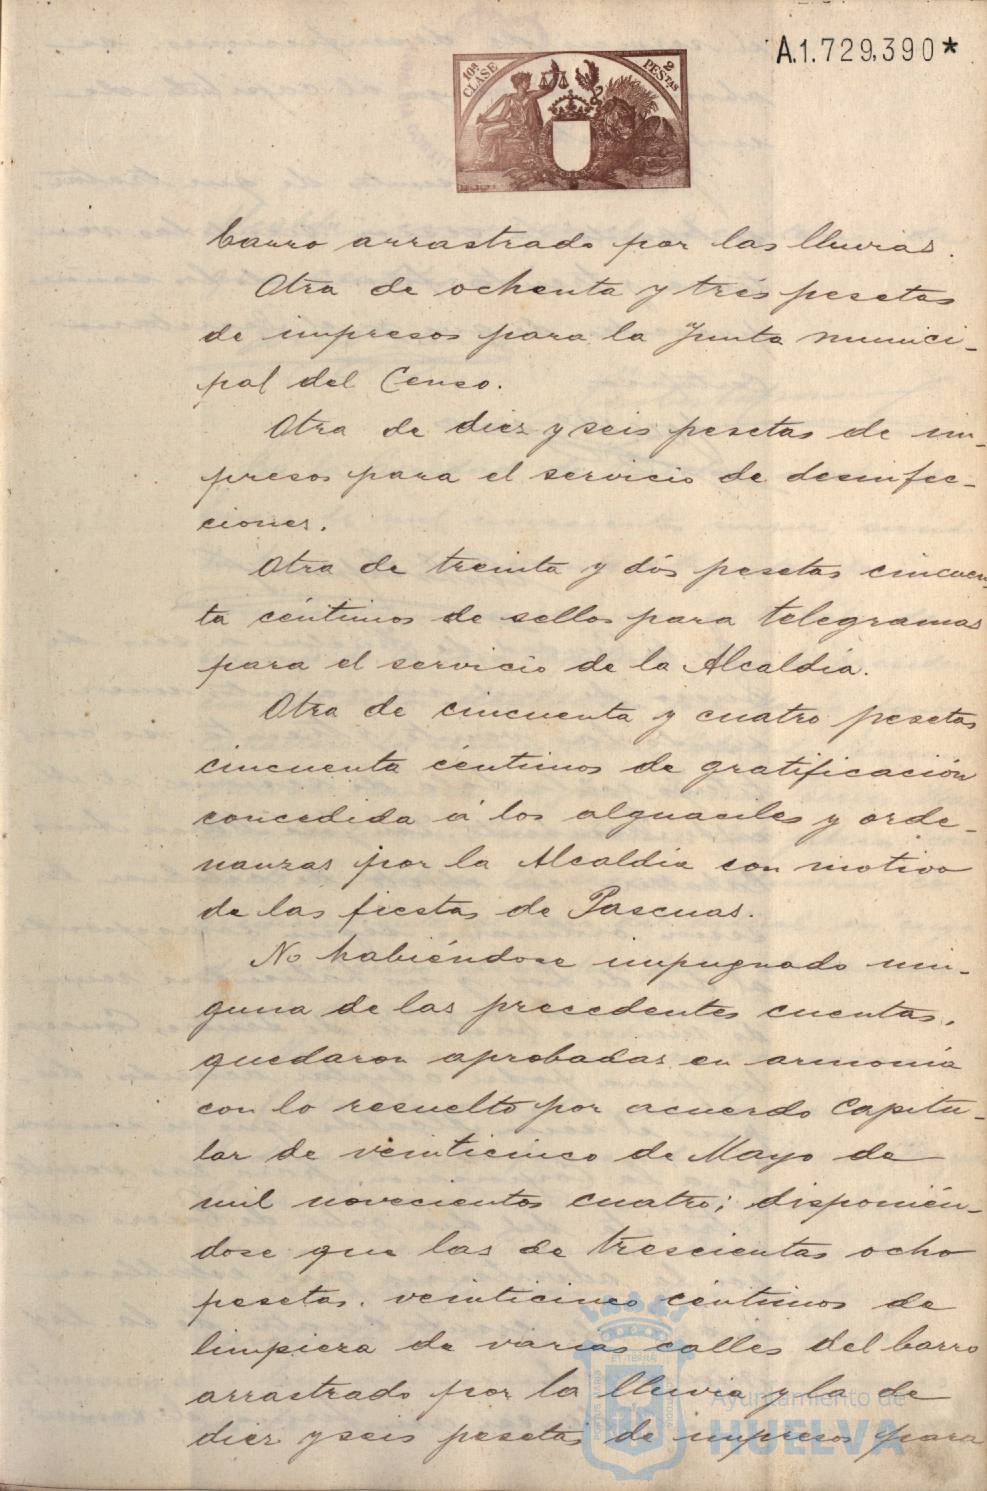 A.1.729.390*
10ª CLASE
2 PESETAS
barro arrastrado por las lluvias.
Otra de ochenta y trés pesetas
de impresos para la Junta munici-
pal del Censo.
Otra de diez y seis pesetas de im-
presos para el servicio de desinfec-
ciones.
Otra de treinta y dós pesetas cincuen-
ta céntimos de sellos para telegramas
para el servicio de la Alcaldía.
Otra de cincuenta y cuatro pesetas
cincuenta céntimos de gratificación
concedida á los alguaciles y orde-
nanzas por la Alcaldía con motivo
de las fiestas de Pascuas.
No habiéndose impugnado nin-
guna de las precedentes cuentas,
quedaron aprobadas en armonía
con lo resuelto por acuerdo Capitu-
lar de veinticinco de Mayo de
mil novecientos cuatro; disponién-
dose que las de trescientas ocho
pesetas. veinticinco céntimos de
limpieza de varias calles del barro
arrastrado por la lluvia y la de
diez y seis pesetas de impresos para
Ayuntamiento de
HUELVA